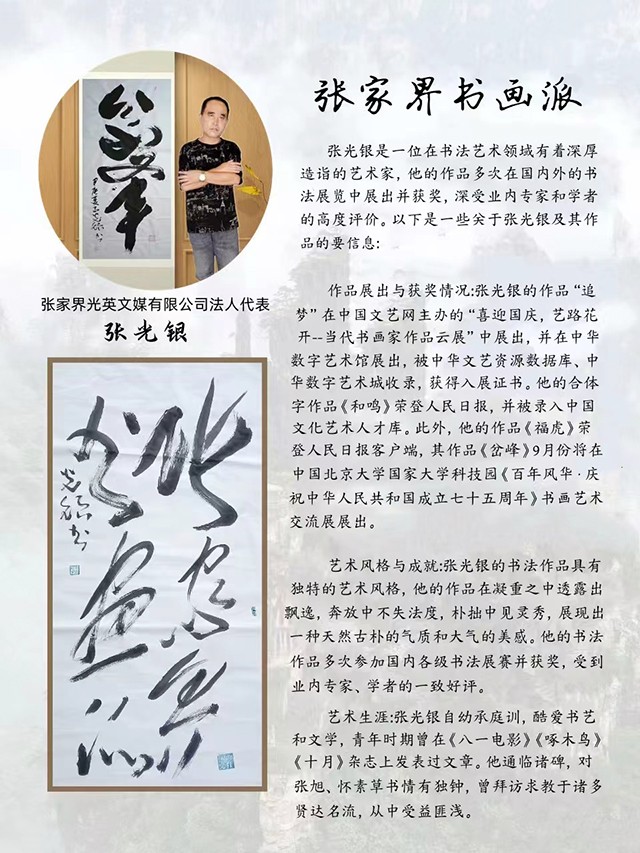 张家界书画派
张光银是一位在书法艺术领域有着深厚
造诣的艺术家，他的作品多次在国内外的书
法展览中展出并获奖，深受业内专家和学者
的高度评价。以下是一些关于张光银及其作
品的要信息：
作品展出与获奖情况:张光银的作品“追
梦”在中国文艺网主办的“喜迎国庆，艺路花
开--当代书画家作品云展”中展出，并在中华
数字艺术馆展出，被中华文艺资源数据库、中
华数字艺术城收录，获得入展证书。他的合体
字作品《和鸣》荣登人民日报，并被录入中国
文化艺术人才库。此外，他的作品《福虎》荣
登人民日报客户端，其作品《岔峰》9月份将在
中国北京大学国家大学科技园《百年风华·庆
祝中华人民共和国成立七十五周年》书画艺术
交流展展出。
艺术风格与成就:张光银的书法作品具有
独特的艺术风格，他的作品在凝重之中透露出
飘逸，奔放中不失法度，朴拙中见灵秀，展现出
一种天然古朴的气质和大气的美感。他的书法
作品多次参加国内各级书法展赛并获奖，受到
业内专家、学者的一致好评。
艺术生涯:张光银自幼承庭训，酷爱书艺
和文学，青年时期曾在《八一电影》《啄木鸟》
《十月》杂志上发表过文章。他通临诸碑，对
张旭、怀素草书情有独钟，曾拜访求教于诸多
贤达名流，从中受益匪浅。
张家界光英文媒有限公司法人代表
张光银
张家界
书画派
光银书